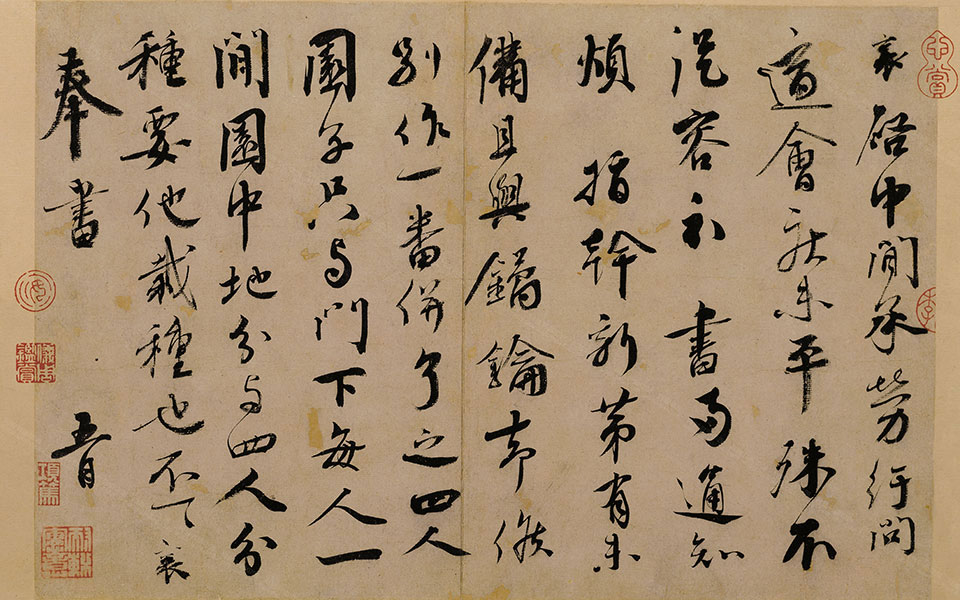 襄啓中間承勞行問
適會未平殊不
從容書通知
煩指幹新第有未
備且與鐍鑰候
別作一番併了之四人
園子只与門下每人一
間園中地分与四人分
種要他栽種也不一一襄
奉書 五月